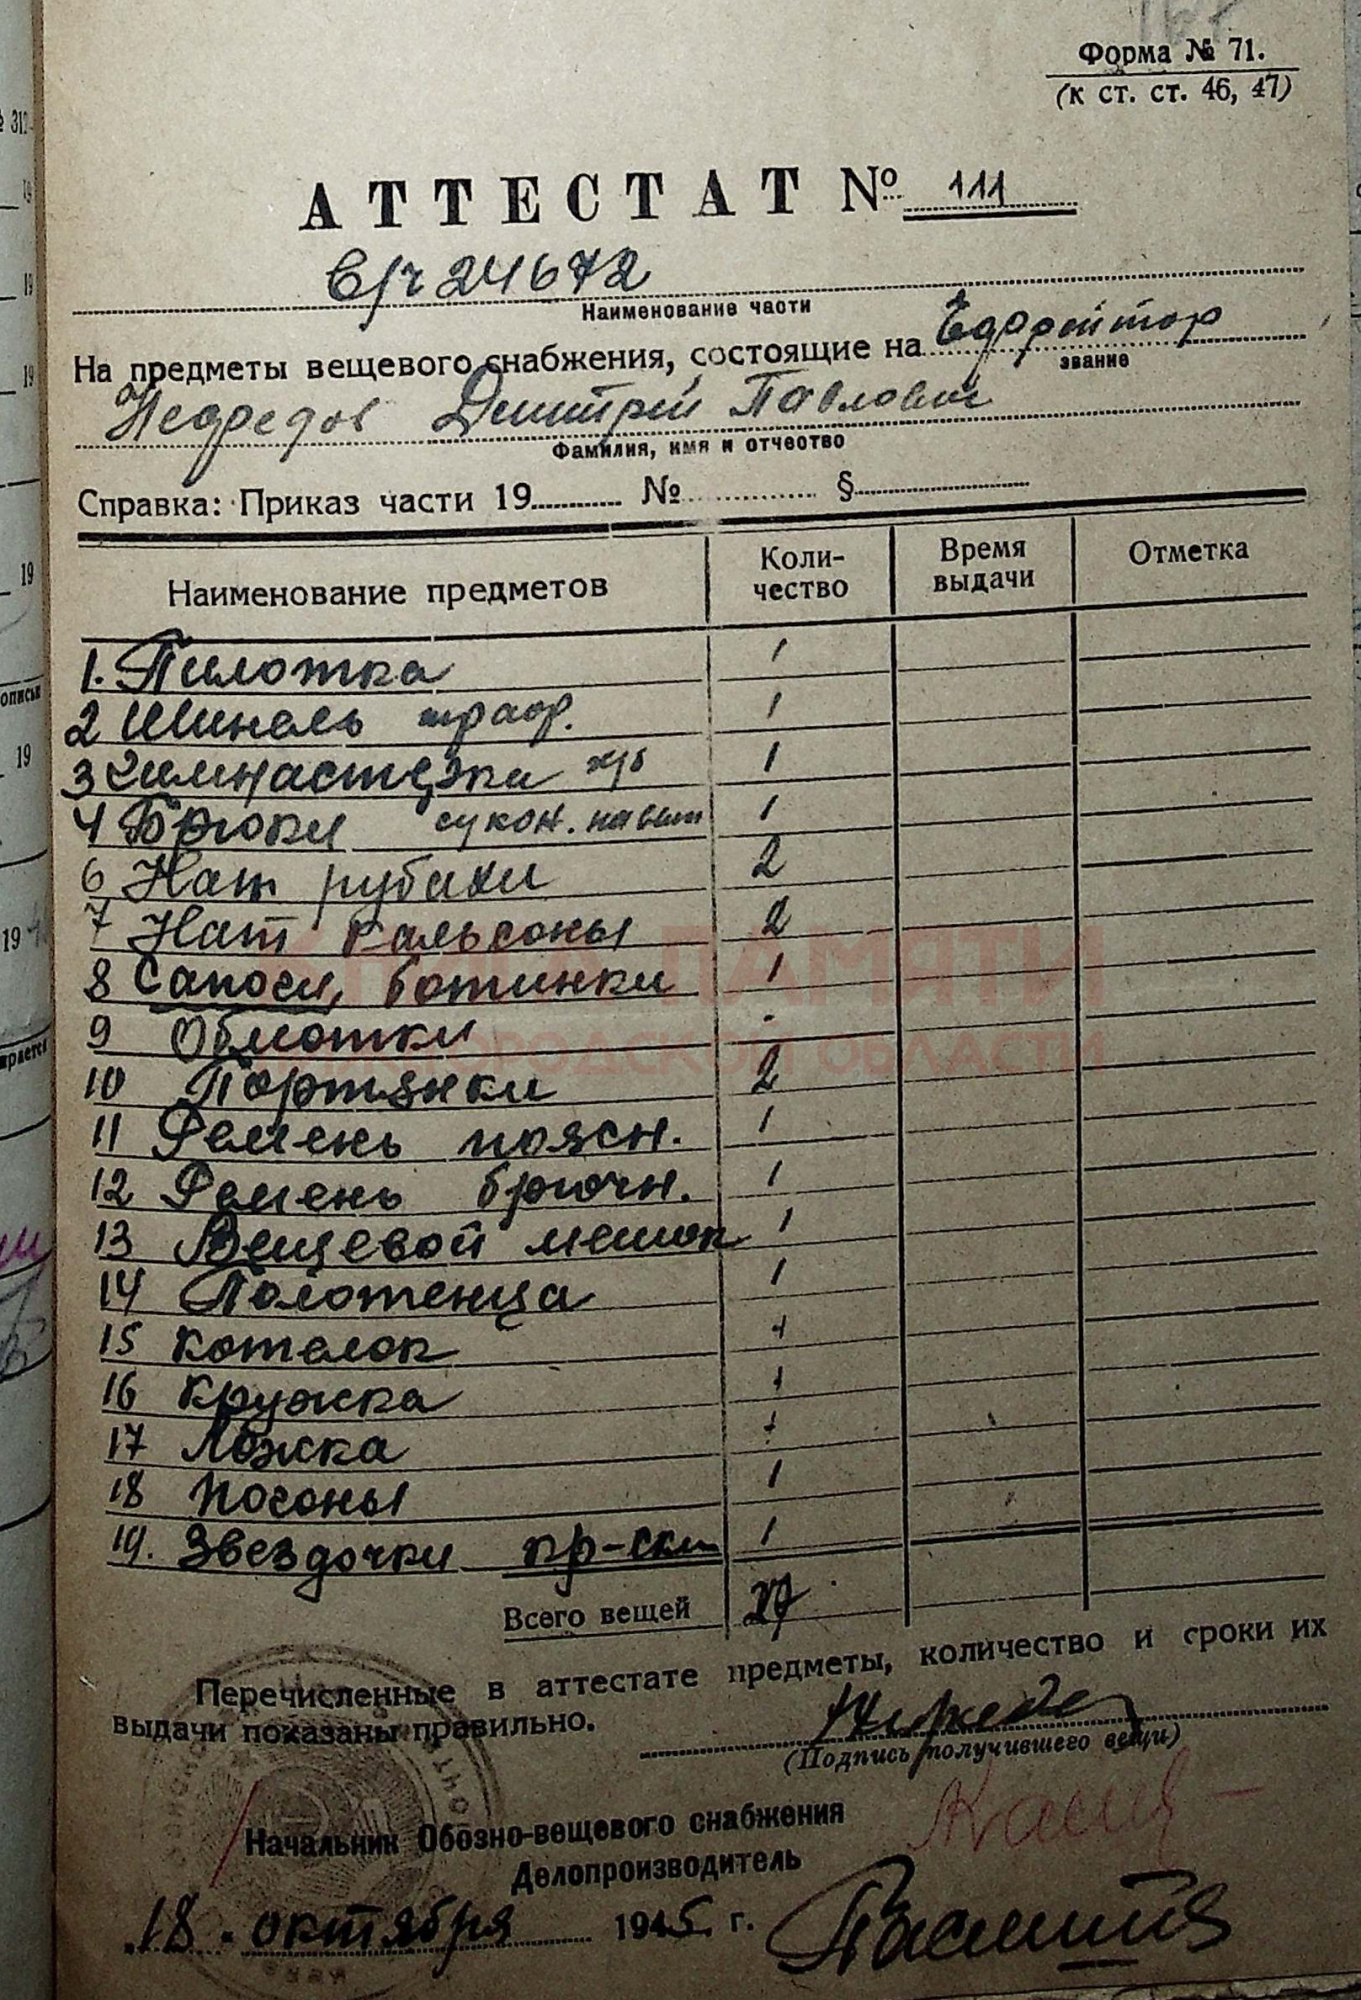 Форма № 71.
(к ст. ст. 46, 47)
АТТЕСТАТ № 111
в/ч 24672
Наименование части
На предметы вещевого снабжения, состоящие на Ефрейтор
звание
Нефедов Дмитрий Павлович
Фамилия, имя и отчество
Справка: Приказ части 19 № §
Наименование предметов Коли-чество Время выдачи Отметка
1. Пилотка 1
2 Шинель 1
3 Гимнастерки х/б 1
4 Брюки сукон. 1
6 Нат рубахи 2
7 Нат кальсоны 2
8 Сапоги, ботинки 1
9 Обмотки -
10 Портянки 2
11 Ремень поясн. 1
12 Ремень брючн. 1
13 Вещевой мешок 1
14 Полотенца 1
15 Котелок 1
16 Кружка 1
17 Ложка 1
18 Погоны 1
19. Звездочки 1
КНИГА ПАМЯТИ
НИЖЕГОРОДСКОЙ ОБЛАСТИ
Всего вещей
Перечисленные в аттестате предметы, количество и сроки их
выдачи показаны правильно.
(Подпись получившего вещи)
Начальник Обозно-вещевого снабжения
Делопроизводитель
18 октября 1945 г.